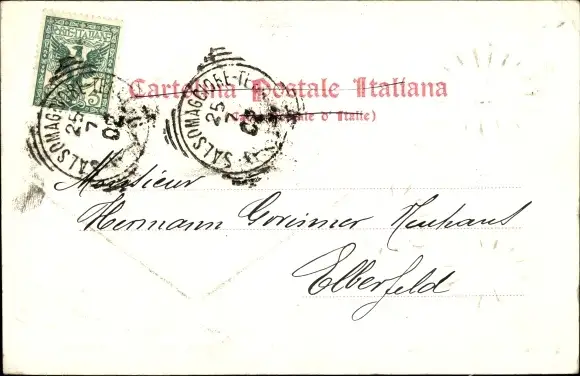 POSTE ITALIANE
Cartolina Postale Italiana
(Carte postale d'Italie)
SALSOMAGGIORE
25
7
02
SALSOMAGGIORE
25
7
02
Monsieur
Hermann Neuhaus
Elberfeld